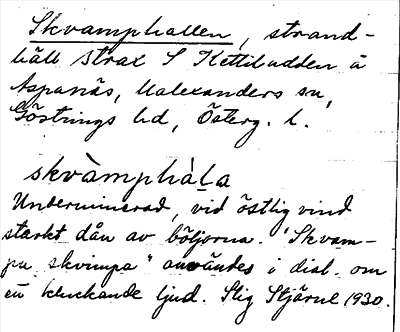 Skvamphallen, strand-
häll strax S Kettiludden å
Aspanäs, V Alexanders sn,
Göstrings hd, Österg. l.
skvàmphàla
Underminerad, vid östlig vind
starkt dån av böljorna. "Skvam-
pa, skvimpa" användes i dial. om
ett kluckande ljud. Stig Stjärne 1930.